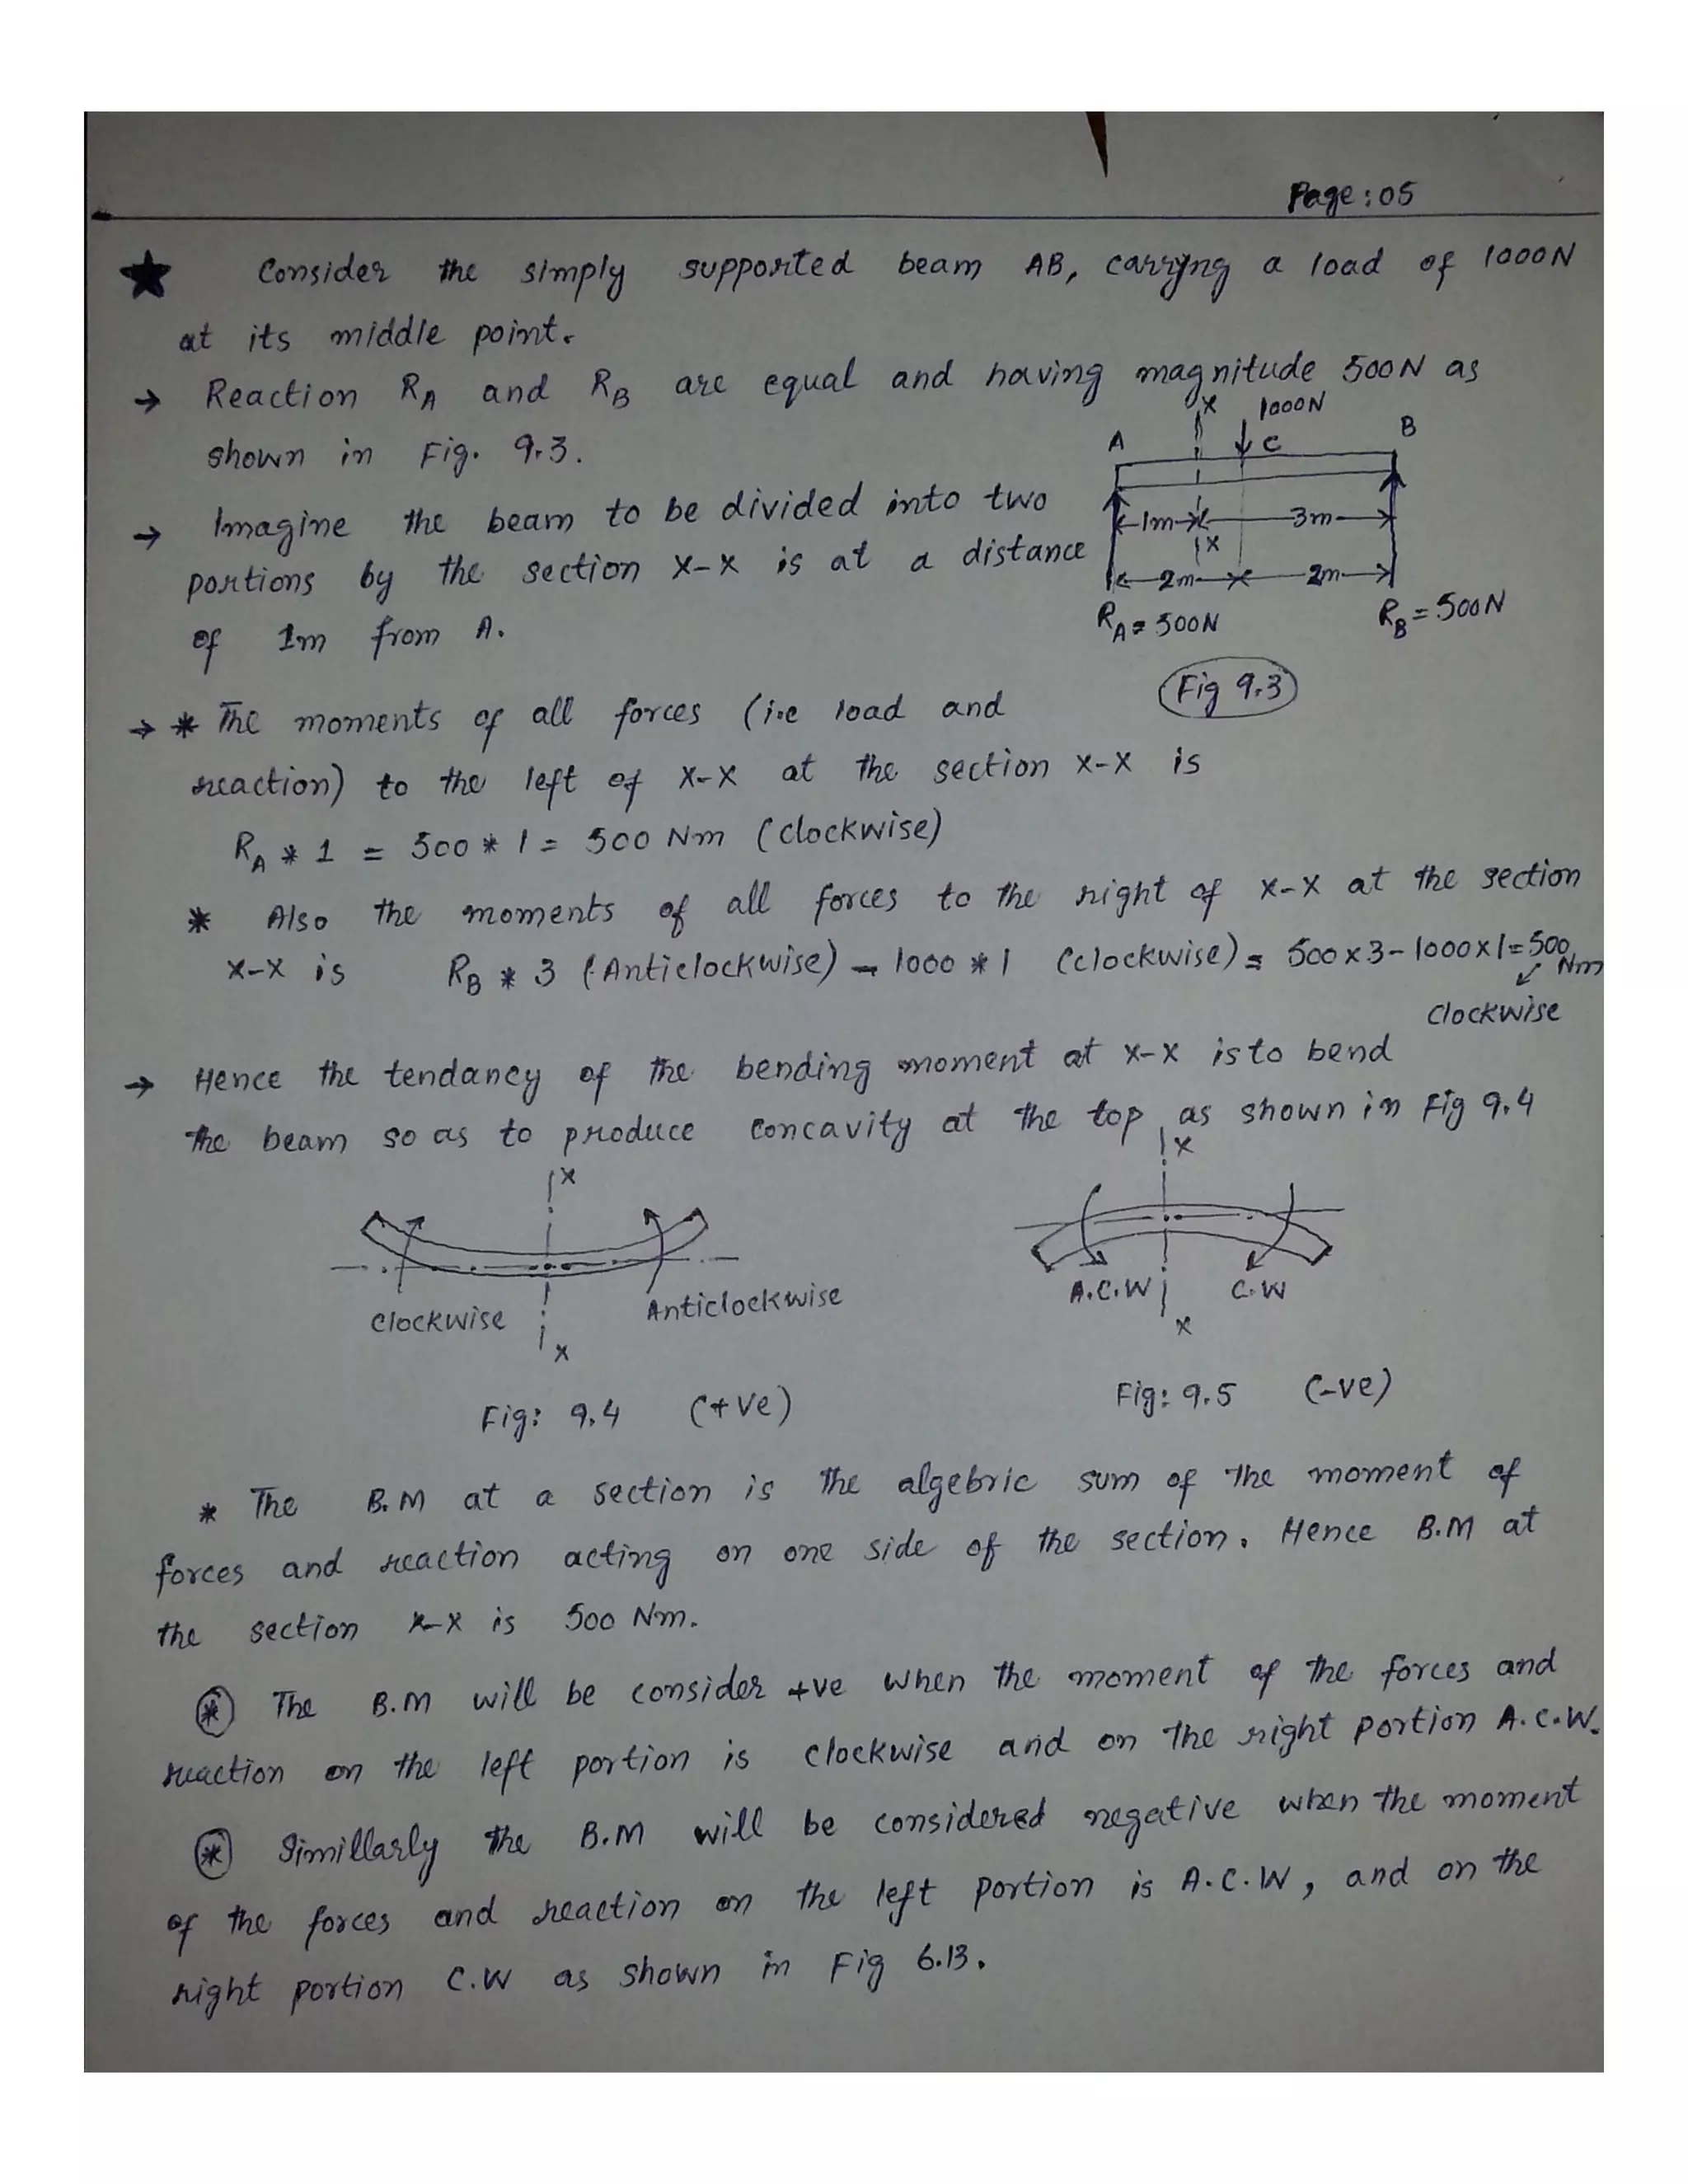 Page: 05
★ Consider the simply supported beam AB, carryng a load of 1000N
at its middle point.
→ Reaction RA and RB are equal and having magnitude 500N as
shown in Fig. 9.3.
→ Imagine the beam to be divided into two
portions by the section X-X is at a distance
of 1m from A.
X 1000N
A C B
1m 3m
X
2m 2m
RA = 500N RB = 500N
Fig 9.3
→ * The moments of all forces (i.e load and
reaction) to the left of X-X at the section X-X is
RA * 1 = 500 * 1 = 500 Nm (clockwise)
* Also the moments of all forces to the right of X-X at the section
X-X is RB * 3 (Anticlockwise) - 1000 * 1 (clockwise) = 500 x 3 - 1000 x 1 = 500 Nm
Clockwise
→ Hence the tendancy of the bending moment at X-X is to bend
the beam so as to produce concavity at the top as shown in Fig 9.4
X X
Clockwise Anticlockwise A.C.W C.W
X X
Fig: 9.4 (+ve) Fig: 9.5 (-ve)
* The B.M at a section is the algebric sum of the moment of
forces and reaction acting on one side of the section. Hence B.M at
the section X-X is 500 Nm.
* The B.M will be consider +ve when the moment of the forces and
reaction on the left portion is clockwise and on the right portion A.C.W.
* Simillarly the B.M will be considered negative when the moment
of the forces and reaction on the left portion is A.C.W, and on the
right portion C.W as shown in Fig 6.13.